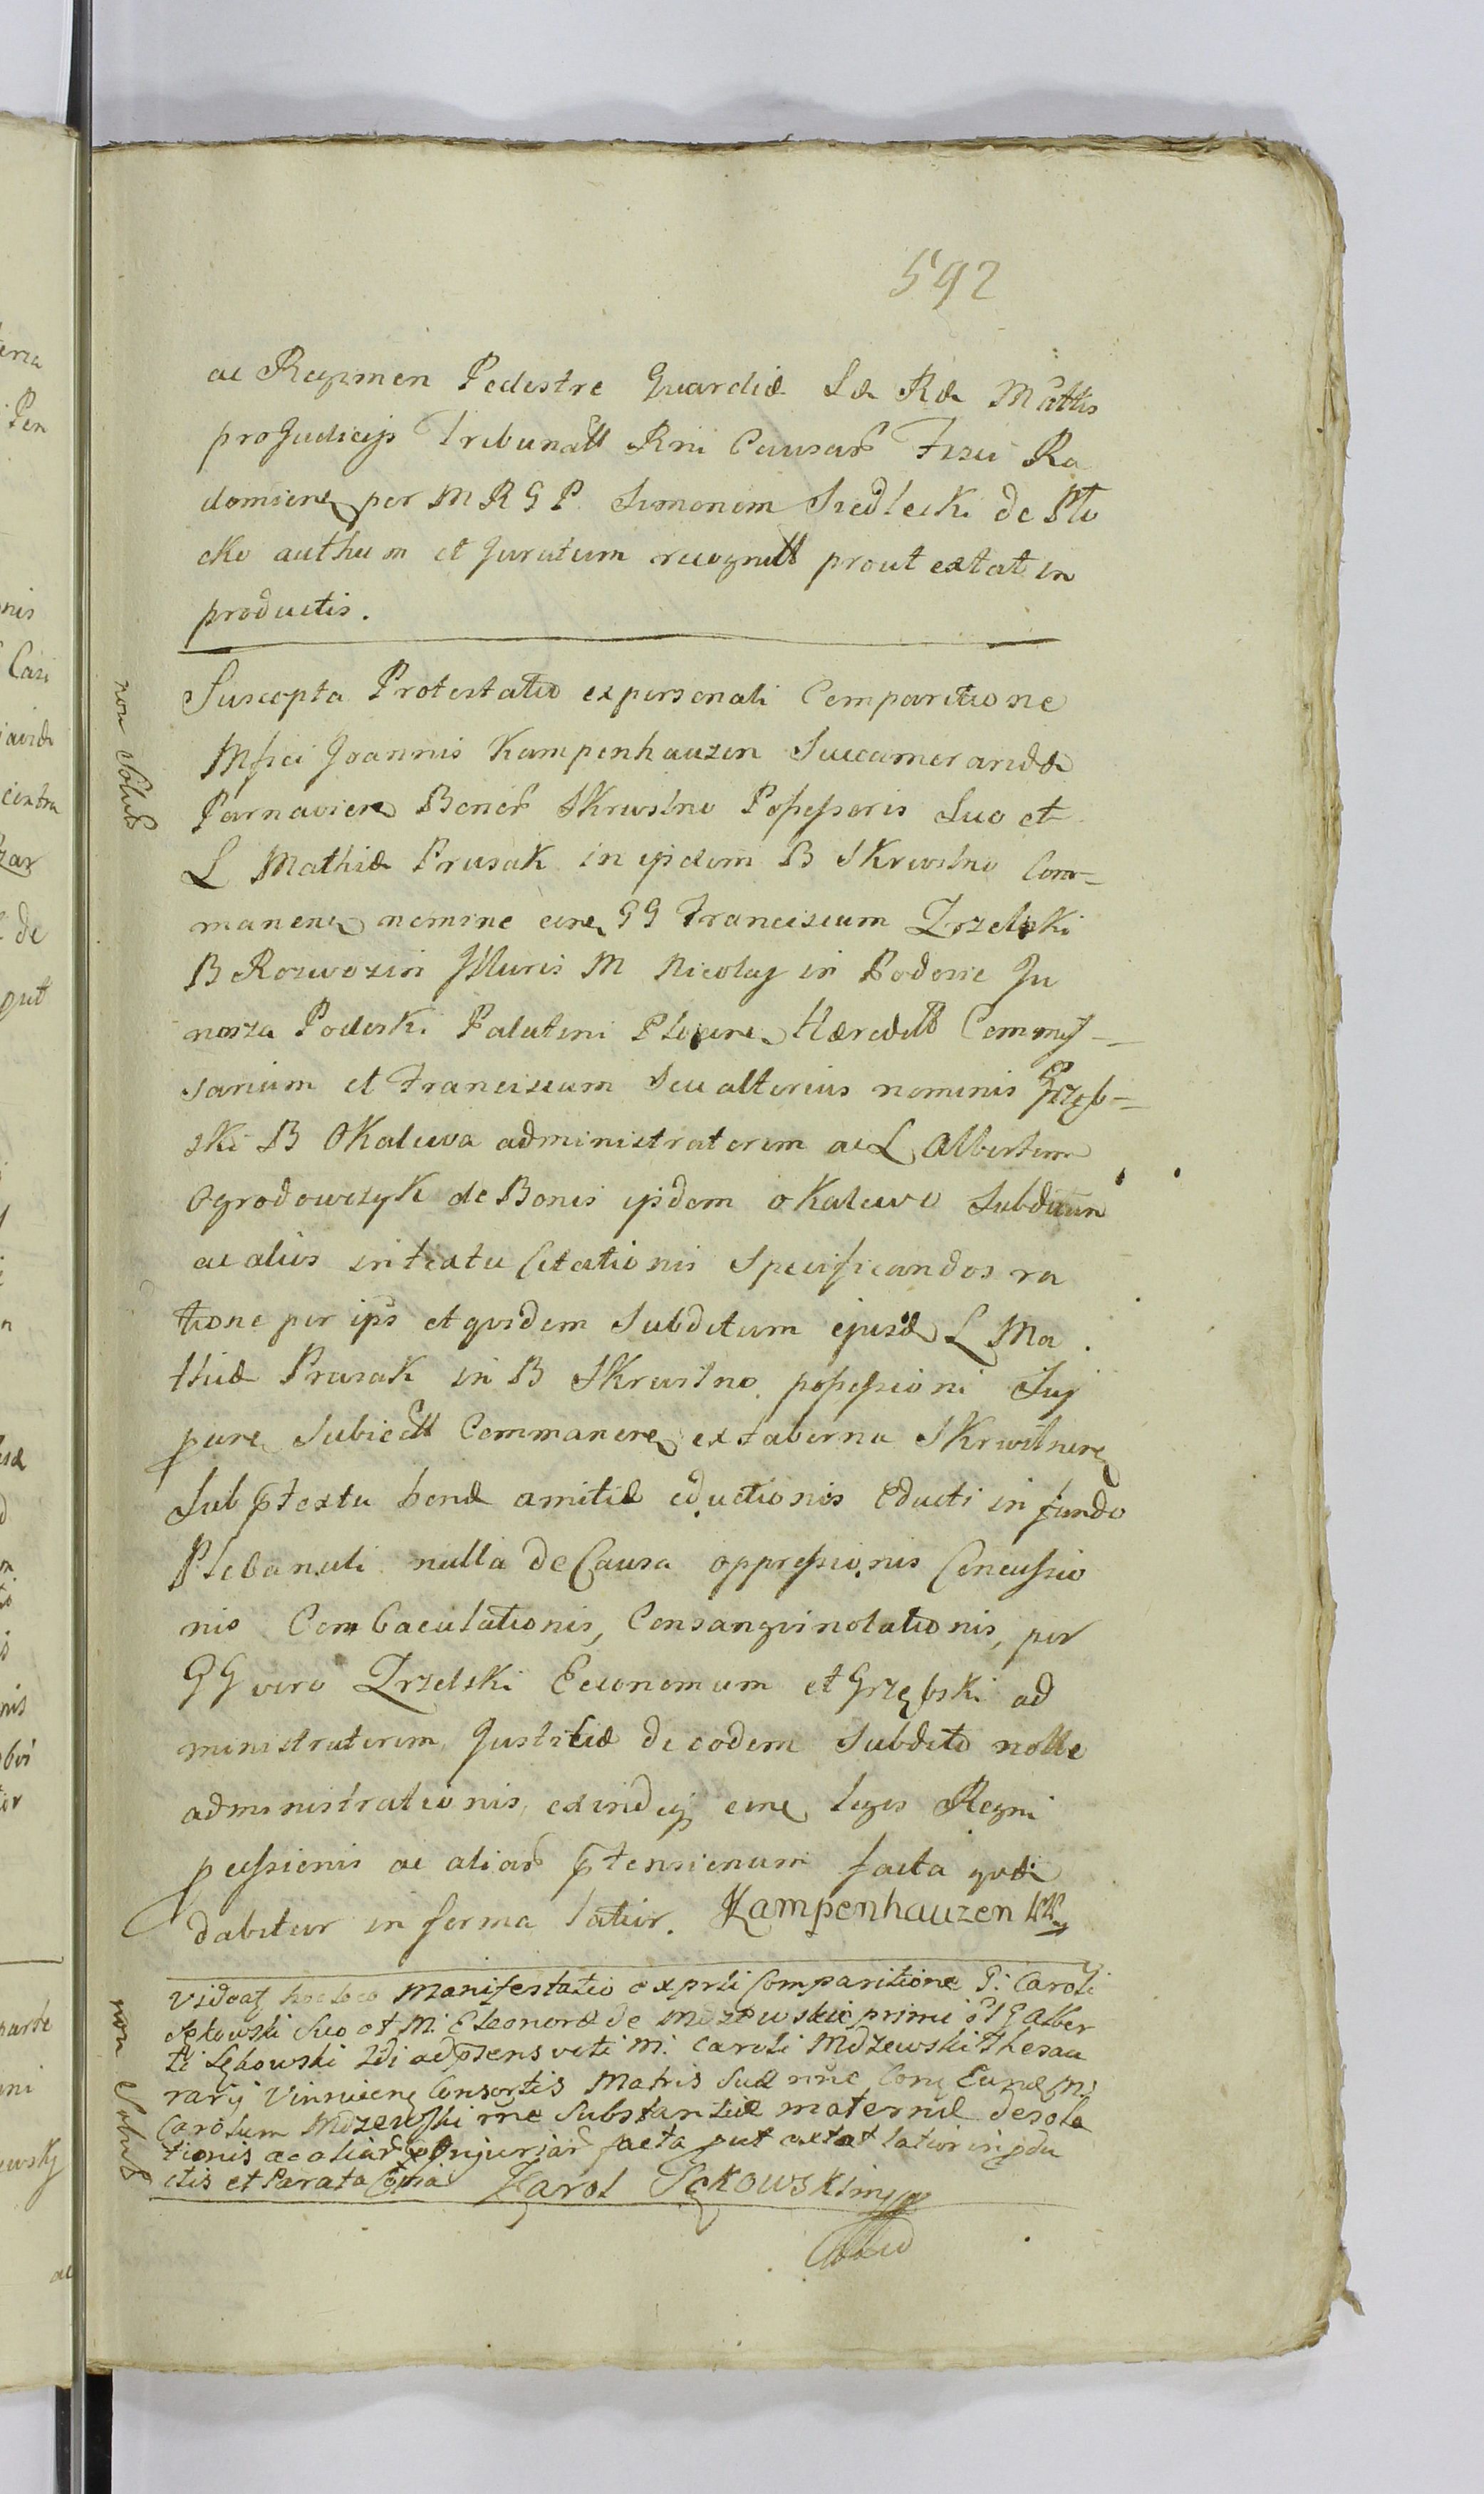 592
ac Regimen Pedestre Guardiæ Sæ Ræ Mattis
pro Judicijs Tribunalt Rni Causar Fisci Ra
domiens per M R G P Simonem Siedlecki de Plo
cko authum et Juratum recognitt prout extat in
productis.
non Solvit
Suscepta Protestatio ex personali Comparitione
Mfici Joannis Kampenhauzen Succamerandæ
Parnaviens Bonor Skrwilno Possessoris Suo et
L Mathiæ Prusak in ijsdem B Skrwilno Com=
manens nomine cire GG Franciscum Zrzelski
B Rozwozin Jlluris M Nicolaj in Podosie Ju
nosza Podoski Palatini Plocens Hæreditt Commis=
sarium et Franciscum seu alterius nominis Grzęb=
ski B Okalewa administratorem ac L Albertum
Ogrodowczyk de Bonis ijsdem Okalewo Subditum
ac alios in textu Citationis Specificandos ra
tione per ips et quidem Subditum ejusd L Ma
thiæ Prusak in B Skrwilno possessioni Suj
pure Subiectt Commanens ex taberna Skrwilnens
Sub ptextu bonæ amitiæ eductionis Educti in fundo
Plebanali nulla de Causa oppressionis Concussio
nis Combaculationis, Consangvinolationis, per
GG vero Zrzelski Economum et Grzębski ad
ministratorem Justitiæ de eodem Subdito nolle
administrationis, exindeq cire leges Regni
peussionis ac aliar ptensionum facta quæ
dabitur in forma latior. Kampenhauzen
non Solvit
Videat hoc loco Manifestatio ex prli Comparitione P: Caroli
Sękowski Suo et M: Eleonoræ de Mdzewskie primi G Alber
ti Sękowski 2di ad psens voti M: Caroli Mdzewski Thesau
rarij Vinnicens Consortis Matris Suæ nne Con Eund M:
Carolum Mdzewski rne Substantiæ maternæ desola
tionis ac aliar Injuriar facta put extat latior in pdu
ctis et Parata Copia Karol Sękowski mp